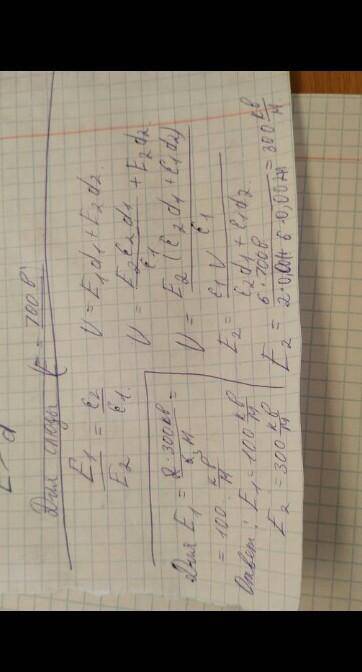 Для слюды U = 700 В
E₁/E₂ = ε₂/ε₁
U = E₁d₁ + E₂d₂
U = E₂ε₂d₁/ε₁ + E₂d₂
U = E₂(ε₂d₁ + ε₁d₂)/ε₁
E₂ = ε₁U/(ε₂d₁ + ε₁d₂)
E₂ = 6·700В/(2·0,001 + 6·0,002м) = 300 кВ/м
Для E₁ =
= 100 кВ/м
Ответ: E₁ = 100 кВ/м
E₂ = 300 кВ/м